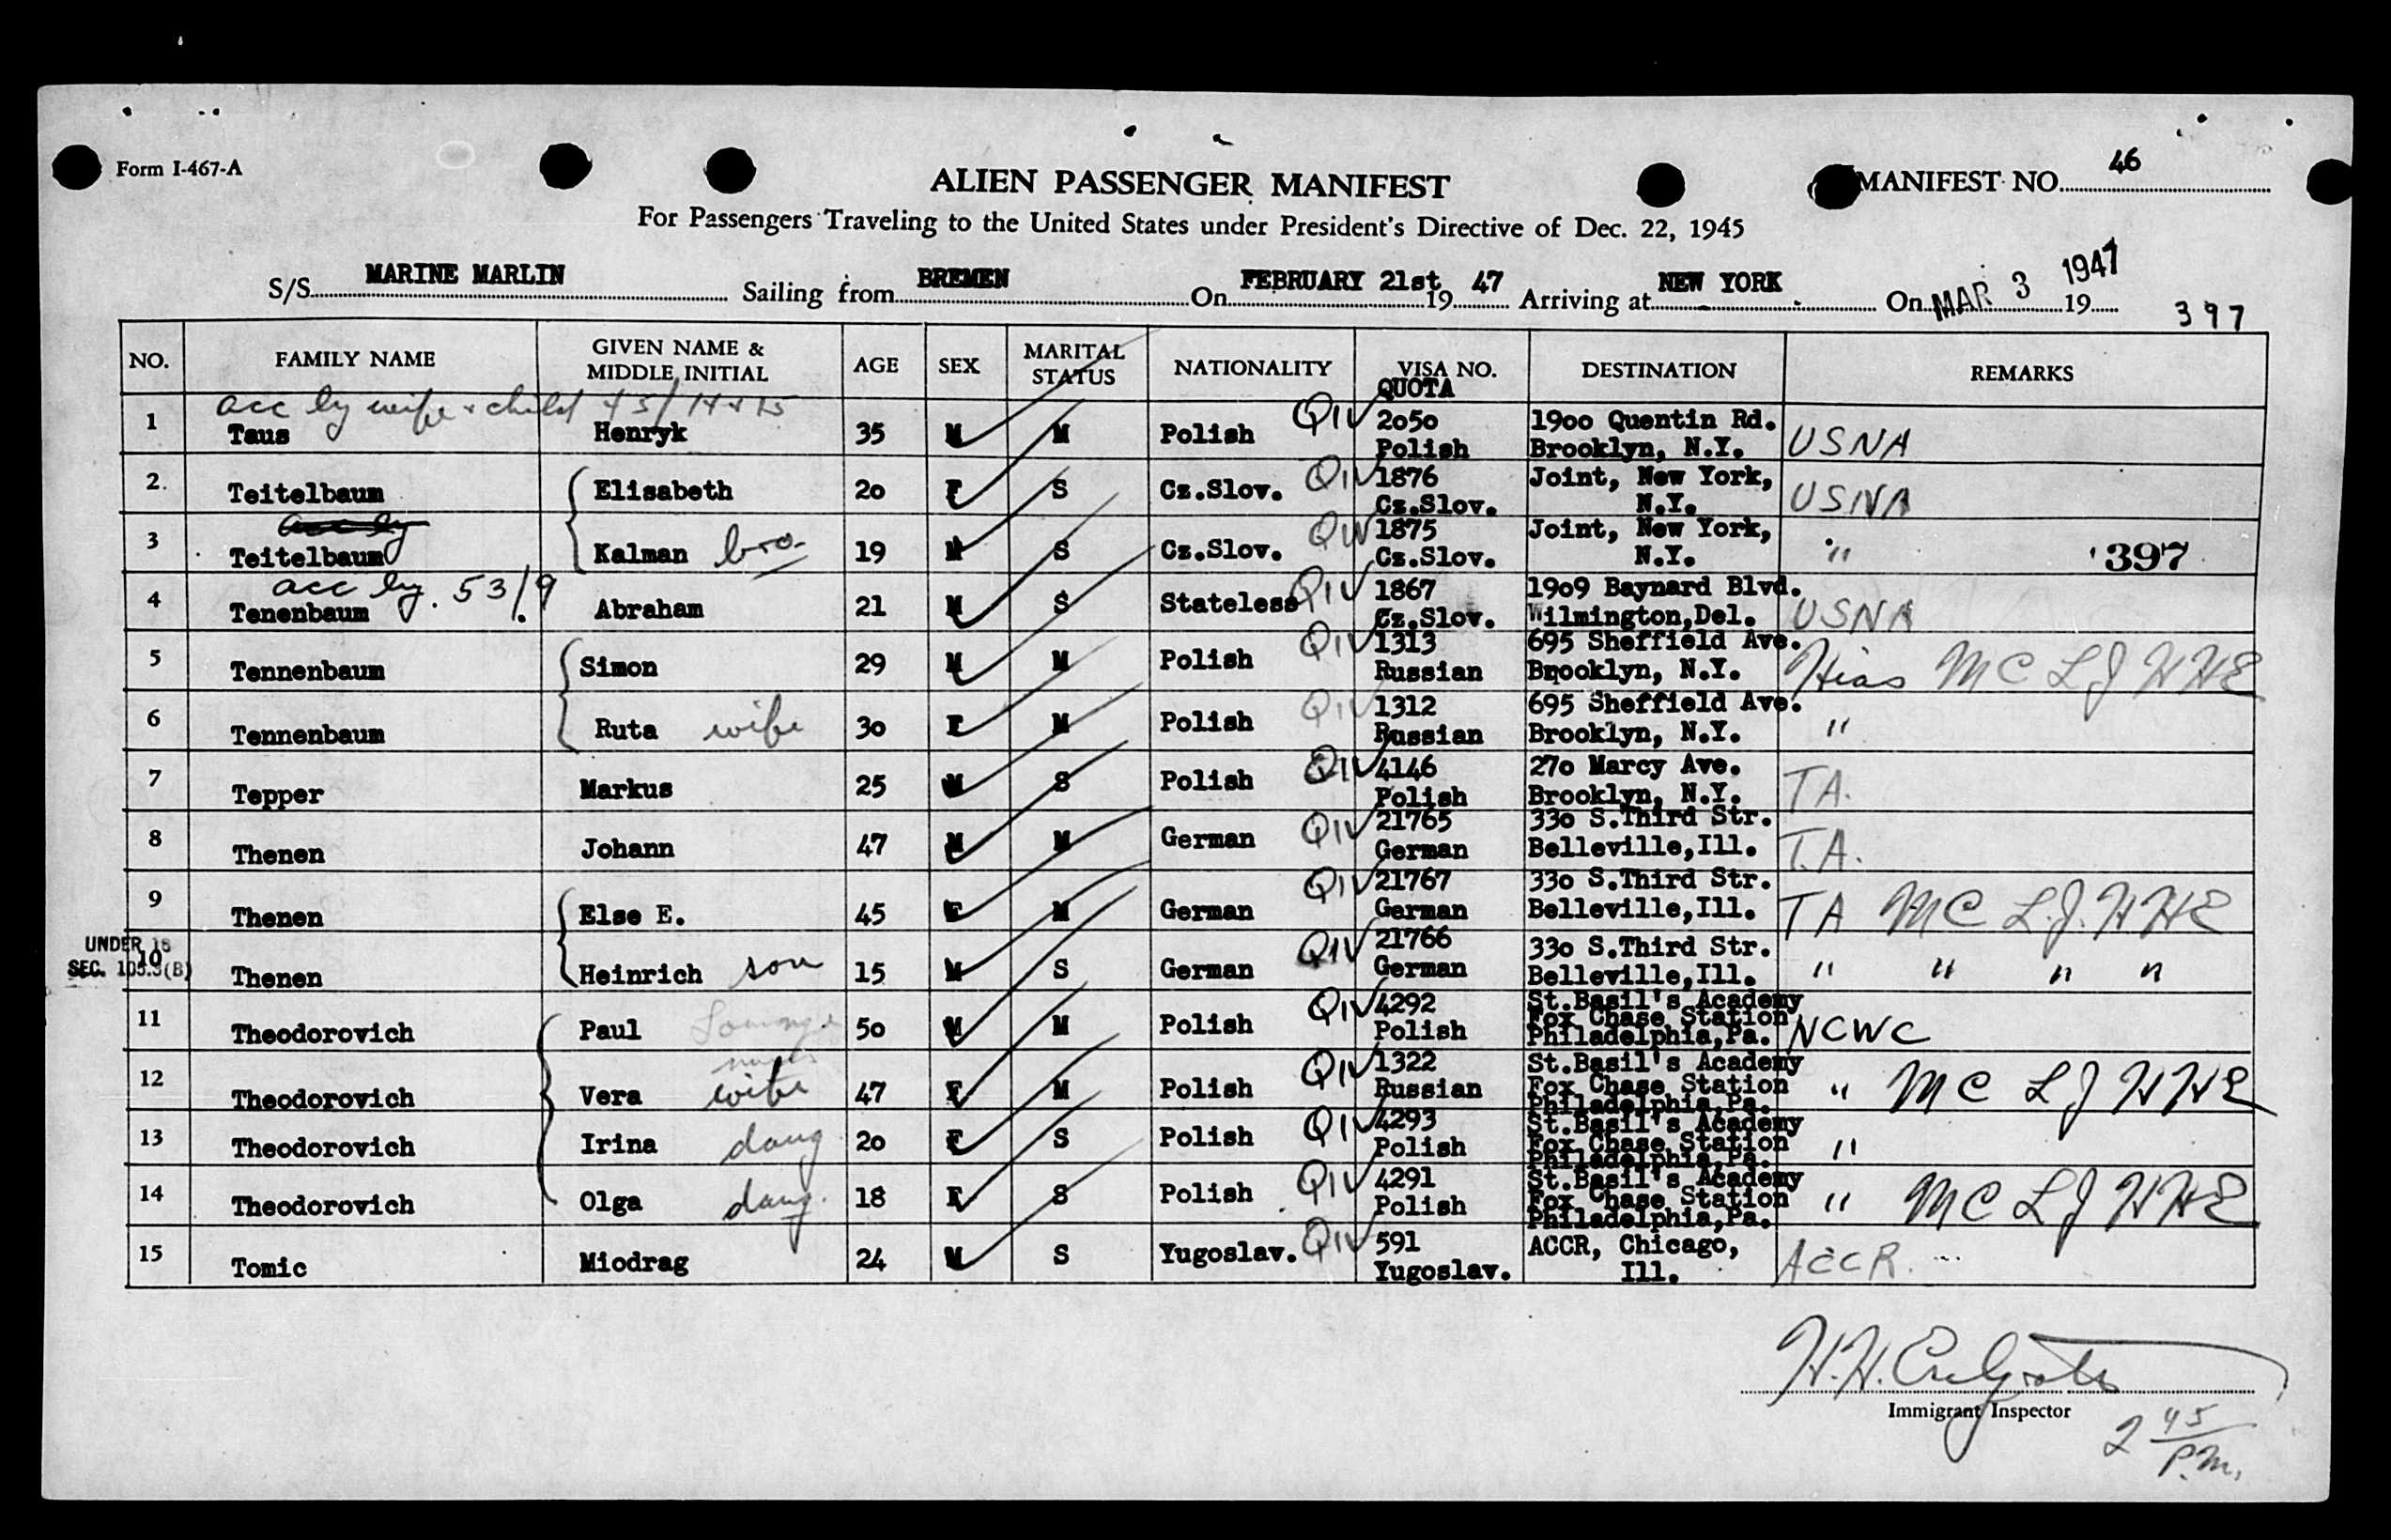 Form I-467-A
ALIEN PASSENGER MANIFEST
MANIFEST NO. 46
For Passengers Traveling to the United States under President's Directive of Dec. 22, 1945
S/S MARINE MARLIN Sailing from BREMEN On FEBRUARY 21st 19 47 Arriving at NEW YORK On MAR 3 1947 19
397
NO. FAMILY NAME GIVEN NAME & MIDDLE INITIAL AGE SEX MARITAL STATUS NATIONALITY VISA NO. DESTINATION REMARKS
QUOTA
acc by wife & child 45/14 & 15
1 Taus Henryk 35 M M Polish QIV 2050 Polish 1900 Quentin Rd. Brooklyn, N.Y. USNA
2. Teitelbaum Elisabeth 20 F S Cz.Slov. QIV 1876 Cz.Slov. Joint, New York, N.Y. USNA
acc by
3 Teitelbaum Kalman bro. 19 M S Cz.Slov. QIV 1875 Cz.Slov. Joint, New York, N.Y. " 397
acc by. 53/9
4 Tenenbaum Abraham 21 M S Stateless QIV 1867 Cz.Slov. 1909 Baynard Blvd. Wilmington,Del. USNA
5 Tennenbaum Simon 29 M M Polish QIV 1313 Russian 695 Sheffield Ave. Brooklyn, N.Y. Hias MC LJ HHE
6 Tennenbaum Ruta wife 30 F M Polish QIV 1312 Russian 695 Sheffield Ave. Brooklyn, N.Y. "
7 Tepper Markus 25 M S Polish QIV 4146 Polish 270 Marcy Ave. Brooklyn, N.Y. TA.
8 Thenen Johann 47 M M German QIV 21765 German 330 S.Third Str. Belleville,Ill. T.A.
9 Thenen Else E. 45 F M German QIV 21767 German 330 S.Third Str. Belleville,Ill. TA MC L.J. HHE
UNDER 16
SEC. 105.3(B)
10 Thenen Heinrich son 15 M S German QIV 21766 German 330 S.Third Str. Belleville,Ill. " " " "
11 Theodorovich Paul 50 M M Polish QIV 4292 Polish St.Basil's Academy Fox Chase Station Philadelphia,Pa. NCWC
12 Theodorovich Vera wife 47 F M Polish QIV 1322 Russian St.Basil's Academy Fox Chase Station Philadelphia,Pa. " MC LJ HHE
13 Theodorovich Irina daug 20 F S Polish QIV 4293 Polish St.Basil's Academy Fox Chase Station Philadelphia,Pa. "
14 Theodorovich Olga daug. 18 F S Polish QIV 4291 Polish St.Basil's Academy Fox Chase Station Philadelphia,Pa. " MC LJ HHE
15 Tomic Miodrag 24 M S Yugoslav. QIV 591 Yugoslav. ACCR, Chicago, Ill. ACCR.
H.H.
Immigrant Inspector
2 45 P.M.